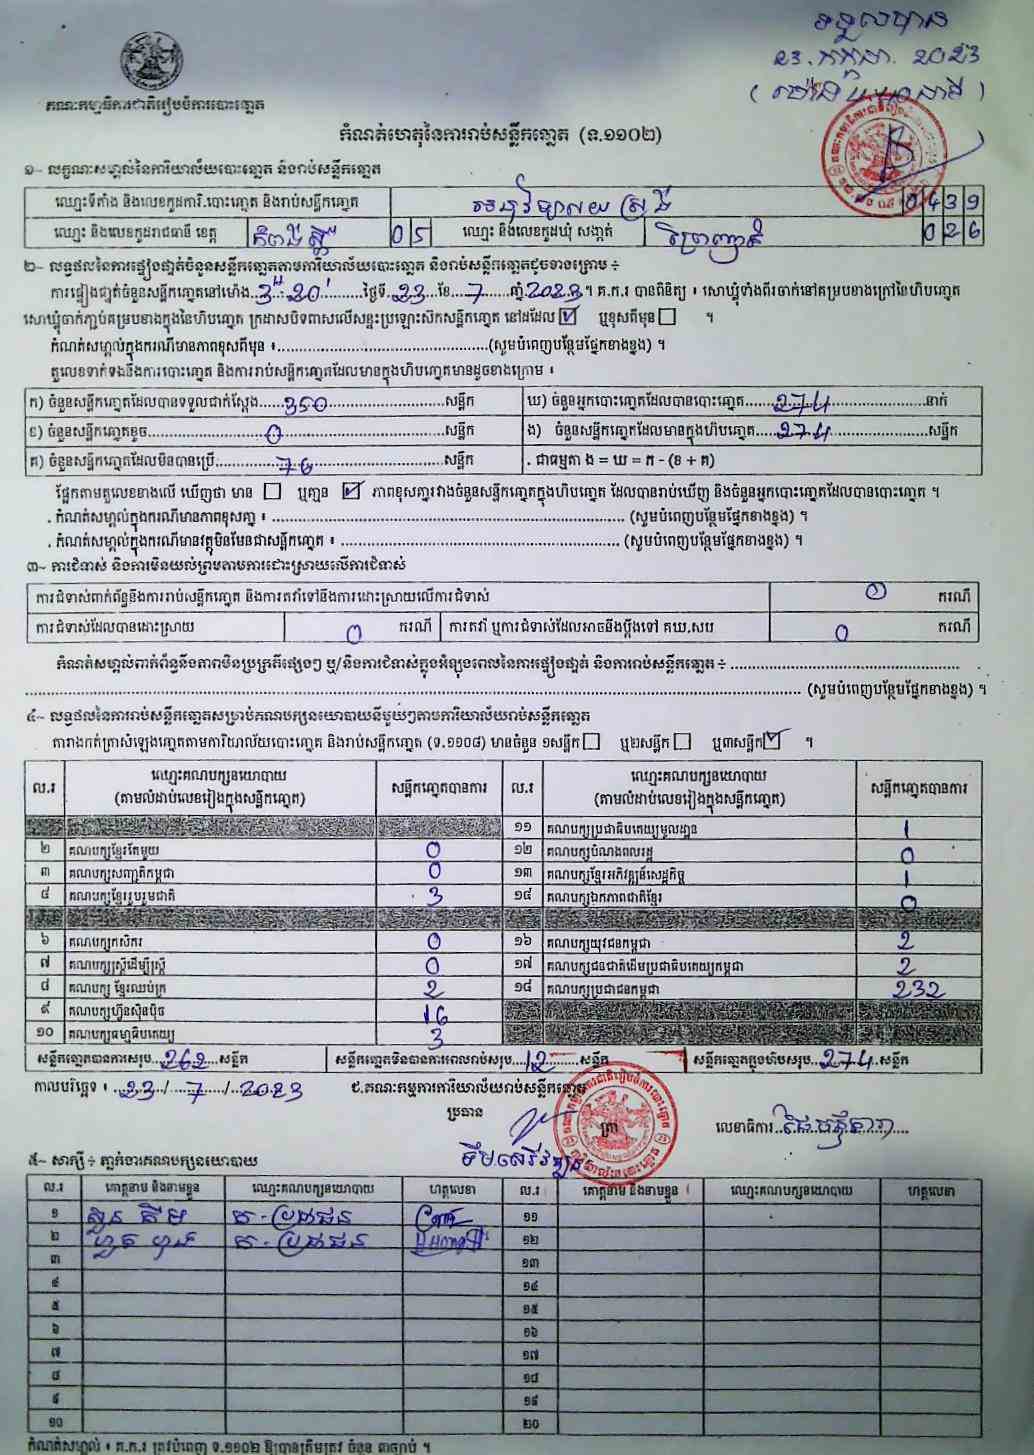 ទទួលបាន
23.កក្កដា.2023
គណៈកម្មាធិការជាតិរៀបចំការបោះឆ្នោត
កំណត់ហេតុនៃការរាប់សន្លឹកឆ្នោត (ទ.១១០២)
១~ លក្ខណៈសម្គាល់នៃការិយាល័យបោះឆ្នោត និងរាប់សន្លឹកឆ្នោត
ឈ្មោះទីតាំង និងលេខកូដការិ.បោះឆ្នោត និងរាប់សន្លឹកឆ្នោត 0439
ឈ្មោះ និងលេខកូដរាជធានី ខេត្ត កំពង់ស្ពឺ 05 ឈ្មោះ និងលេខកូដឃុំ សង្កាត់ 026
២~ លទ្ធផលនៃការផ្ទៀងផ្ទាត់ចំនួនសន្លឹកឆ្នោតតាមការិយាល័យបោះឆ្នោត និងរាប់សន្លឹកឆ្នោតដូចខាងក្រោម ÷
ការផ្ទៀងផ្ទាត់ចំនួនសន្លឹកឆ្នោតនៅម៉ោង 3 20 ថ្ងៃទី 23 ខែ 7 ឆ្នាំ 2023 ។ គ.ក.រ បានពិនិត្យ ៖ សោឃ្លុំទាំងពីរចាក់នៅគម្របខាងក្រៅនៃហិបឆ្នោត
សោឃ្លុំចាក់ភ្ជាប់គម្របខាងក្នុងនៃហិបឆ្នោត ក្រដាសបិទពាសលើសន្ទះប្រឡោះស៊កសន្លឹកឆ្នោត នៅដដែល ☑ ឬខុសពីមុន ☐ ។
កំណត់សម្គាល់ក្នុងករណីមានភាពខុសពីមុន ៖ (សូមបំពេញបន្ថែមផ្នែកខាងខ្នង) ។
តួលេខទាក់ទងនឹងការបោះឆ្នោត និងការរាប់សន្លឹកឆ្នោតដែលមានក្នុងហិបឆ្នោតមានដូចខាងក្រោម ៖
ក) ចំនួនសន្លឹកឆ្នោតដែលបានទទួលជាក់ស្តែង 350 សន្លឹក ឃ) ចំនួនអ្នកបោះឆ្នោតដែលបានបោះឆ្នោត 274 នាក់
ខ) ចំនួនសន្លឹកឆ្នោតខូច 0 សន្លឹក ង) ចំនួនសន្លឹកឆ្នោតដែលមានក្នុងហិបឆ្នោត 274 សន្លឹក
គ) ចំនួនសន្លឹកឆ្នោតដែលមិនបានប្រើ 76 សន្លឹក . ជាធម្មតា ង = ឃ = ក - (ខ + គ)
ផ្អែកតាមតួលេខខាងលើ ឃើញថា មាន ☐ ឬគ្មាន ☑ ភាពខុសគ្នារវាងចំនួនសន្លឹកឆ្នោតក្នុងហិបឆ្នោត ដែលបានរាប់ឃើញ និងចំនួនអ្នកបោះឆ្នោតដែលបានបោះឆ្នោត ។
. កំណត់សម្គាល់ក្នុងករណីមានភាពខុសគ្នា ៖ (សូមបំពេញបន្ថែមផ្នែកខាងខ្នង) ។
. កំណត់សម្គាល់ក្នុងករណីមានវត្ថុមិនមែនជាសន្លឹកឆ្នោត ៖ (សូមបំពេញបន្ថែមផ្នែកខាងខ្នង) ។
៣~ ការជំទាស់ និងការមិនយល់ព្រមតាមការដោះស្រាយលើការជំទាស់
ការជំទាស់ពាក់ព័ន្ធនឹងការរាប់សន្លឹកឆ្នោត និងការតវ៉ាទៅនឹងការដោះស្រាយលើការជំទាស់ 0 ករណី
ការជំទាស់ដែលបានដោះស្រាយ 0 ករណី ការតវ៉ា ឬការជំទាស់ដែលអាចនឹងប្តឹងទៅ គឃ.សប 0 ករណី
កំណត់សម្គាល់ពាក់ព័ន្ធនឹងភាពមិនប្រក្រតីផ្សេងៗ ឬ/និងការជំទាស់ក្នុងអំឡុងពេលនៃការផ្ទៀងផ្ទាត់ និងការរាប់សន្លឹកឆ្នោត ÷
(សូមបំពេញបន្ថែមផ្នែកខាងខ្នង) ។
៤~ លទ្ធផលនៃការរាប់សន្លឹកឆ្នោតសម្រាប់គណបក្សនយោបាយនីមួយៗតាមការិយាល័យរាប់សន្លឹកឆ្នោត
តារាងកត់ត្រាសំឡេងឆ្នោតតាមការិយាល័យបោះឆ្នោត និងរាប់សន្លឹកឆ្នោត (ទ.១១០៨) មានចំនួន ១សន្លឹក ☐ ឬ២សន្លឹក ☐ ឬ៣សន្លឹក ☑ ។
ល.រ ឈ្មោះគណបក្សនយោបាយ (តាមលំដាប់លេខរៀងក្នុងសន្លឹកឆ្នោត) សន្លឹកឆ្នោតបានការ ល.រ ឈ្មោះគណបក្សនយោបាយ (តាមលំដាប់លេខរៀងក្នុងសន្លឹកឆ្នោត) សន្លឹកឆ្នោតបានការ
១១ គណបក្សប្រជាធិបតេយ្យមូលដ្ឋាន 1
២ គណបក្សខ្មែរតែមួយ 0 ១២ គណបក្សបំណងពលរដ្ឋ 0
៣ គណបក្សសញ្ជាតិកម្ពុជា 0 ១៣ គណបក្សខ្មែរអភិវឌ្ឍន៍សេដ្ឋកិច្ច 1
៤ គណបក្សខ្មែររួបរួមជាតិ 3 ១៤ គណបក្សឯកភាពជាតិខ្មែរ 0
៦ គណបក្សកសិករ 0 ១៦ គណបក្សយុវជនកម្ពុជា 2
៧ គណបក្សស្ត្រីដើម្បីស្ត្រី 0 ១៧ គណបក្សជនជាតិដើមប្រជាធិបតេយ្យកម្ពុជា 2
៨ គណបក្ស ខ្មែរឈប់ក្រ 2 ១៨ គណបក្សប្រជាជនកម្ពុជា 232
៩ គណបក្សហ៊្វុនស៊ិនប៉ិច 16
១០ គណបក្សធម្មាធិបតេយ្យ 3
សន្លឹកឆ្នោតបានការសរុប 262 សន្លឹក សន្លឹកឆ្នោតមិនបានការពេលរាប់សរុប 12 សន្លឹក សន្លឹកឆ្នោតក្នុងហិបសរុប 274 សន្លឹក
កាលបរិច្ឆេទ ៖ 23/7/2023 ជ.គណៈកម្មការការិយាល័យរាប់សន្លឹកឆ្នោត
ប្រធាន ត្រា លេខាធិការ
៥~ សាក្សី ÷ ភ្នាក់ងារគណបក្សនយោបាយ
ល.រ គោត្តនាម និងនាមខ្លួន ឈ្មោះគណបក្សនយោបាយ ហត្ថលេខា ល.រ គោត្តនាម និងនាមខ្លួន ឈ្មោះគណបក្សនយោបាយ ហត្ថលេខា
១ គ.ប្រជាជន ១១
២ គ.ប្រជាជន ១២
៣ ១៣
៤ ១៤
៥ ១៥
៦ ១៦
៧ ១៧
៨ ១៨
៩ ១៩
១០ ២០
កំណត់សម្គាល់ ៖ គ.ក.រ ត្រូវបំពេញ ទ.១១០២ ឱ្យបានត្រឹមត្រូវ ចំនួន ៣ច្បាប់ ។